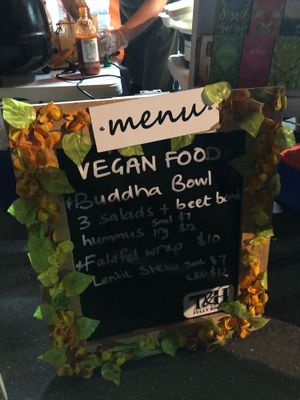 ·menu·
VEGAN FOOD
* Buddha Bowl
3 salads + beet
hummus Sml $7
lrg $12
* Falafel wrap $10
Lentil Stew Sml $7
LRG $12
T&H